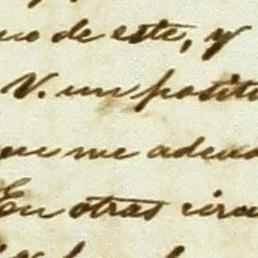 de este, y
V. un posit
que me adeud
En otras circu